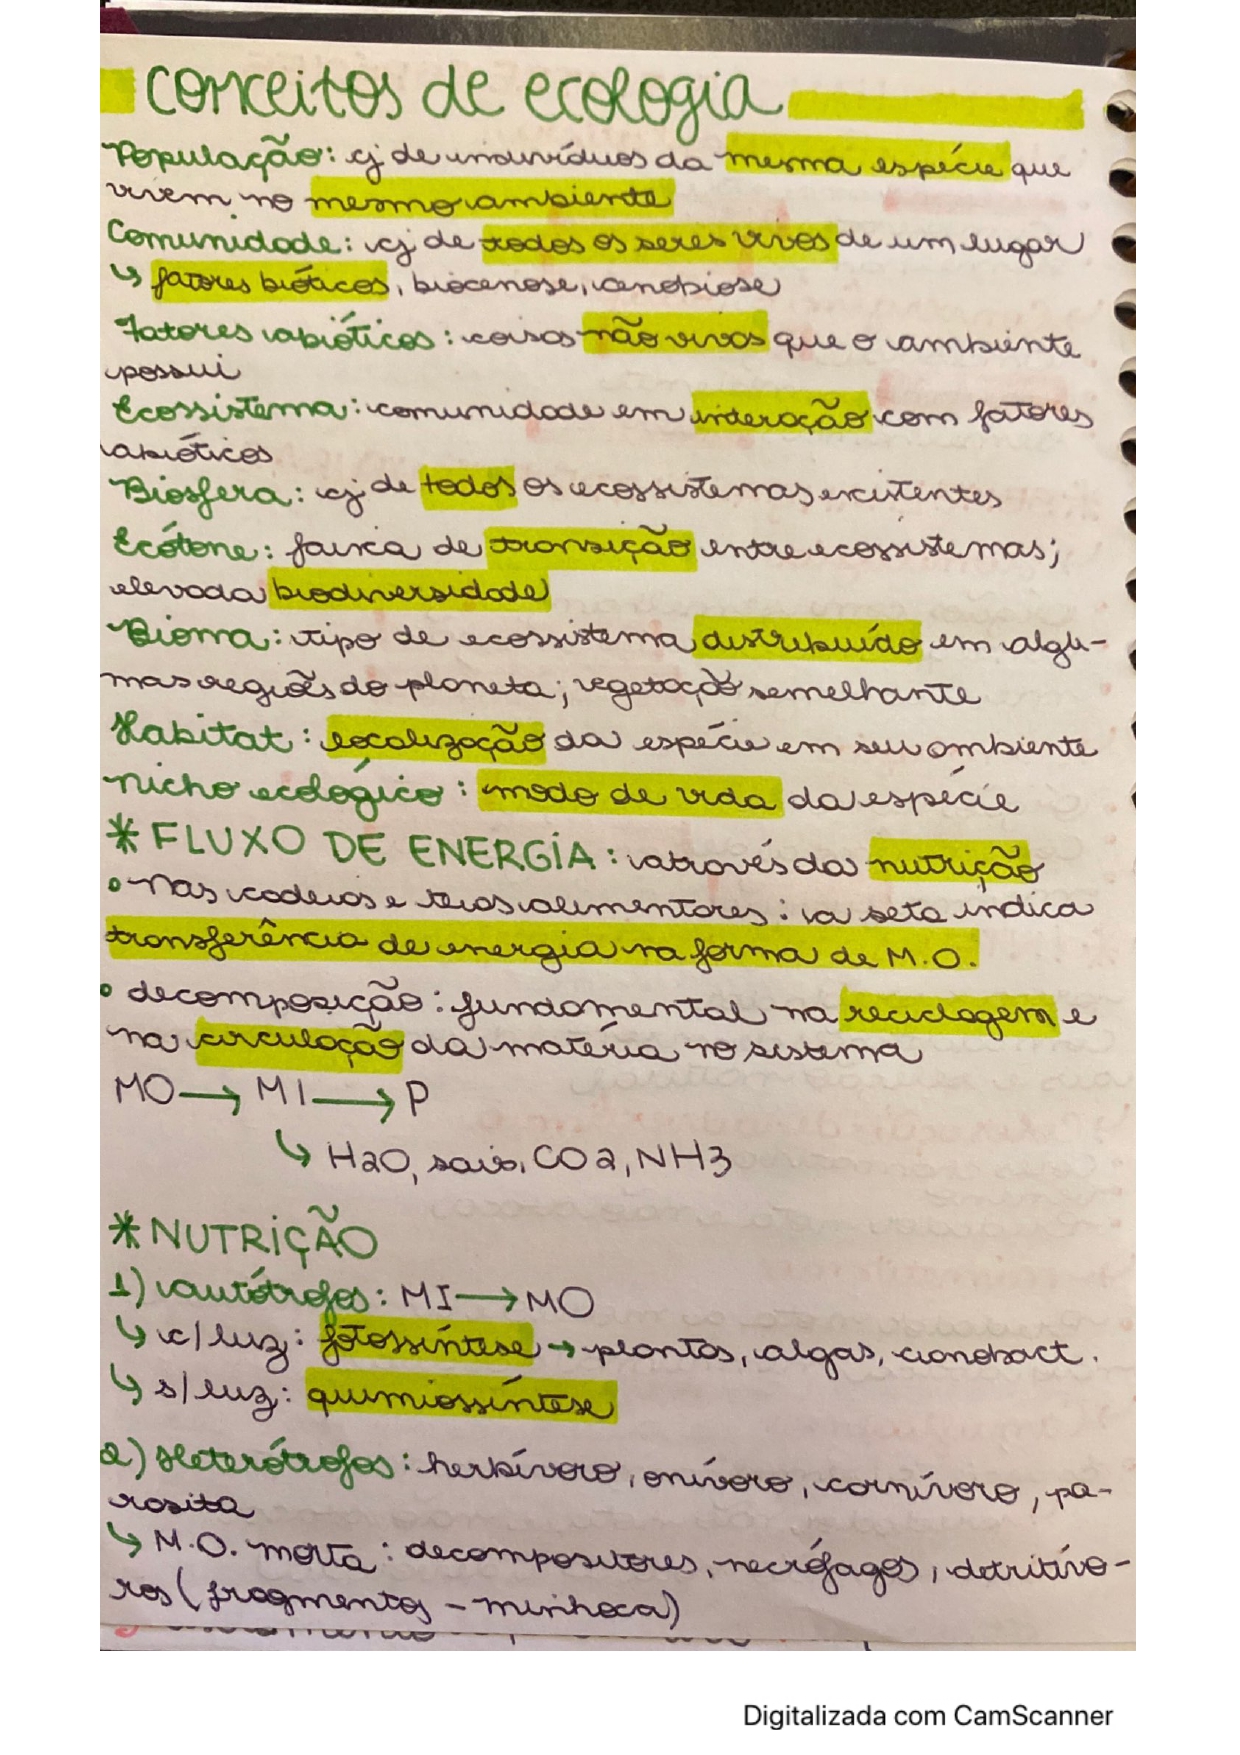 conceitos de ecologia
População: cj de indivíduos da mesma espécie que
vivem no mesmo ambiente
Comunidade: cj de todos os seres vivos de um lugar
↳ fatores bióticos, biocenose, cenobiose
Fatores abióticos: coisas não vivas que o ambiente
possui
Ecossistema: comunidade em interação com fatores
abióticos
Biosfera: cj de todos os ecossistemas existentes
Ecótone: faixa de transição entre ecossistemas;
elevada biodiversidade
Bioma: tipo de ecossistema distribuído em algu-
mas regiões do planeta; vegetação semelhante
Habitat: localização da espécie em seu ambiente
nicho ecológico: modo de vida da espécie
* FLUXO DE ENERGIA: através da nutrição
• Nas cadeias e teias alimentares: a seta indica
transferência de energia na forma de M.O.
• decomposição: fundamental na reciclagem e
na circulação da matéria no sistema
MO → MI → P
↳ H2O, sais, CO2, NH3
* NUTRIÇÃO
1) autótrofos: MI → MO
↳ c/ luz: fotossíntese → plantas, algas, cianobact.
↳ s/ luz: quimiossíntese
2) Heterótrofos: herbívoro, onívoro, carnívoro, pa-
rasita
↳ M.O. morta: decompositores, necrófagos, detritívo-
ros (fragmentos - minhoca)
Digitalizada com CamScanner